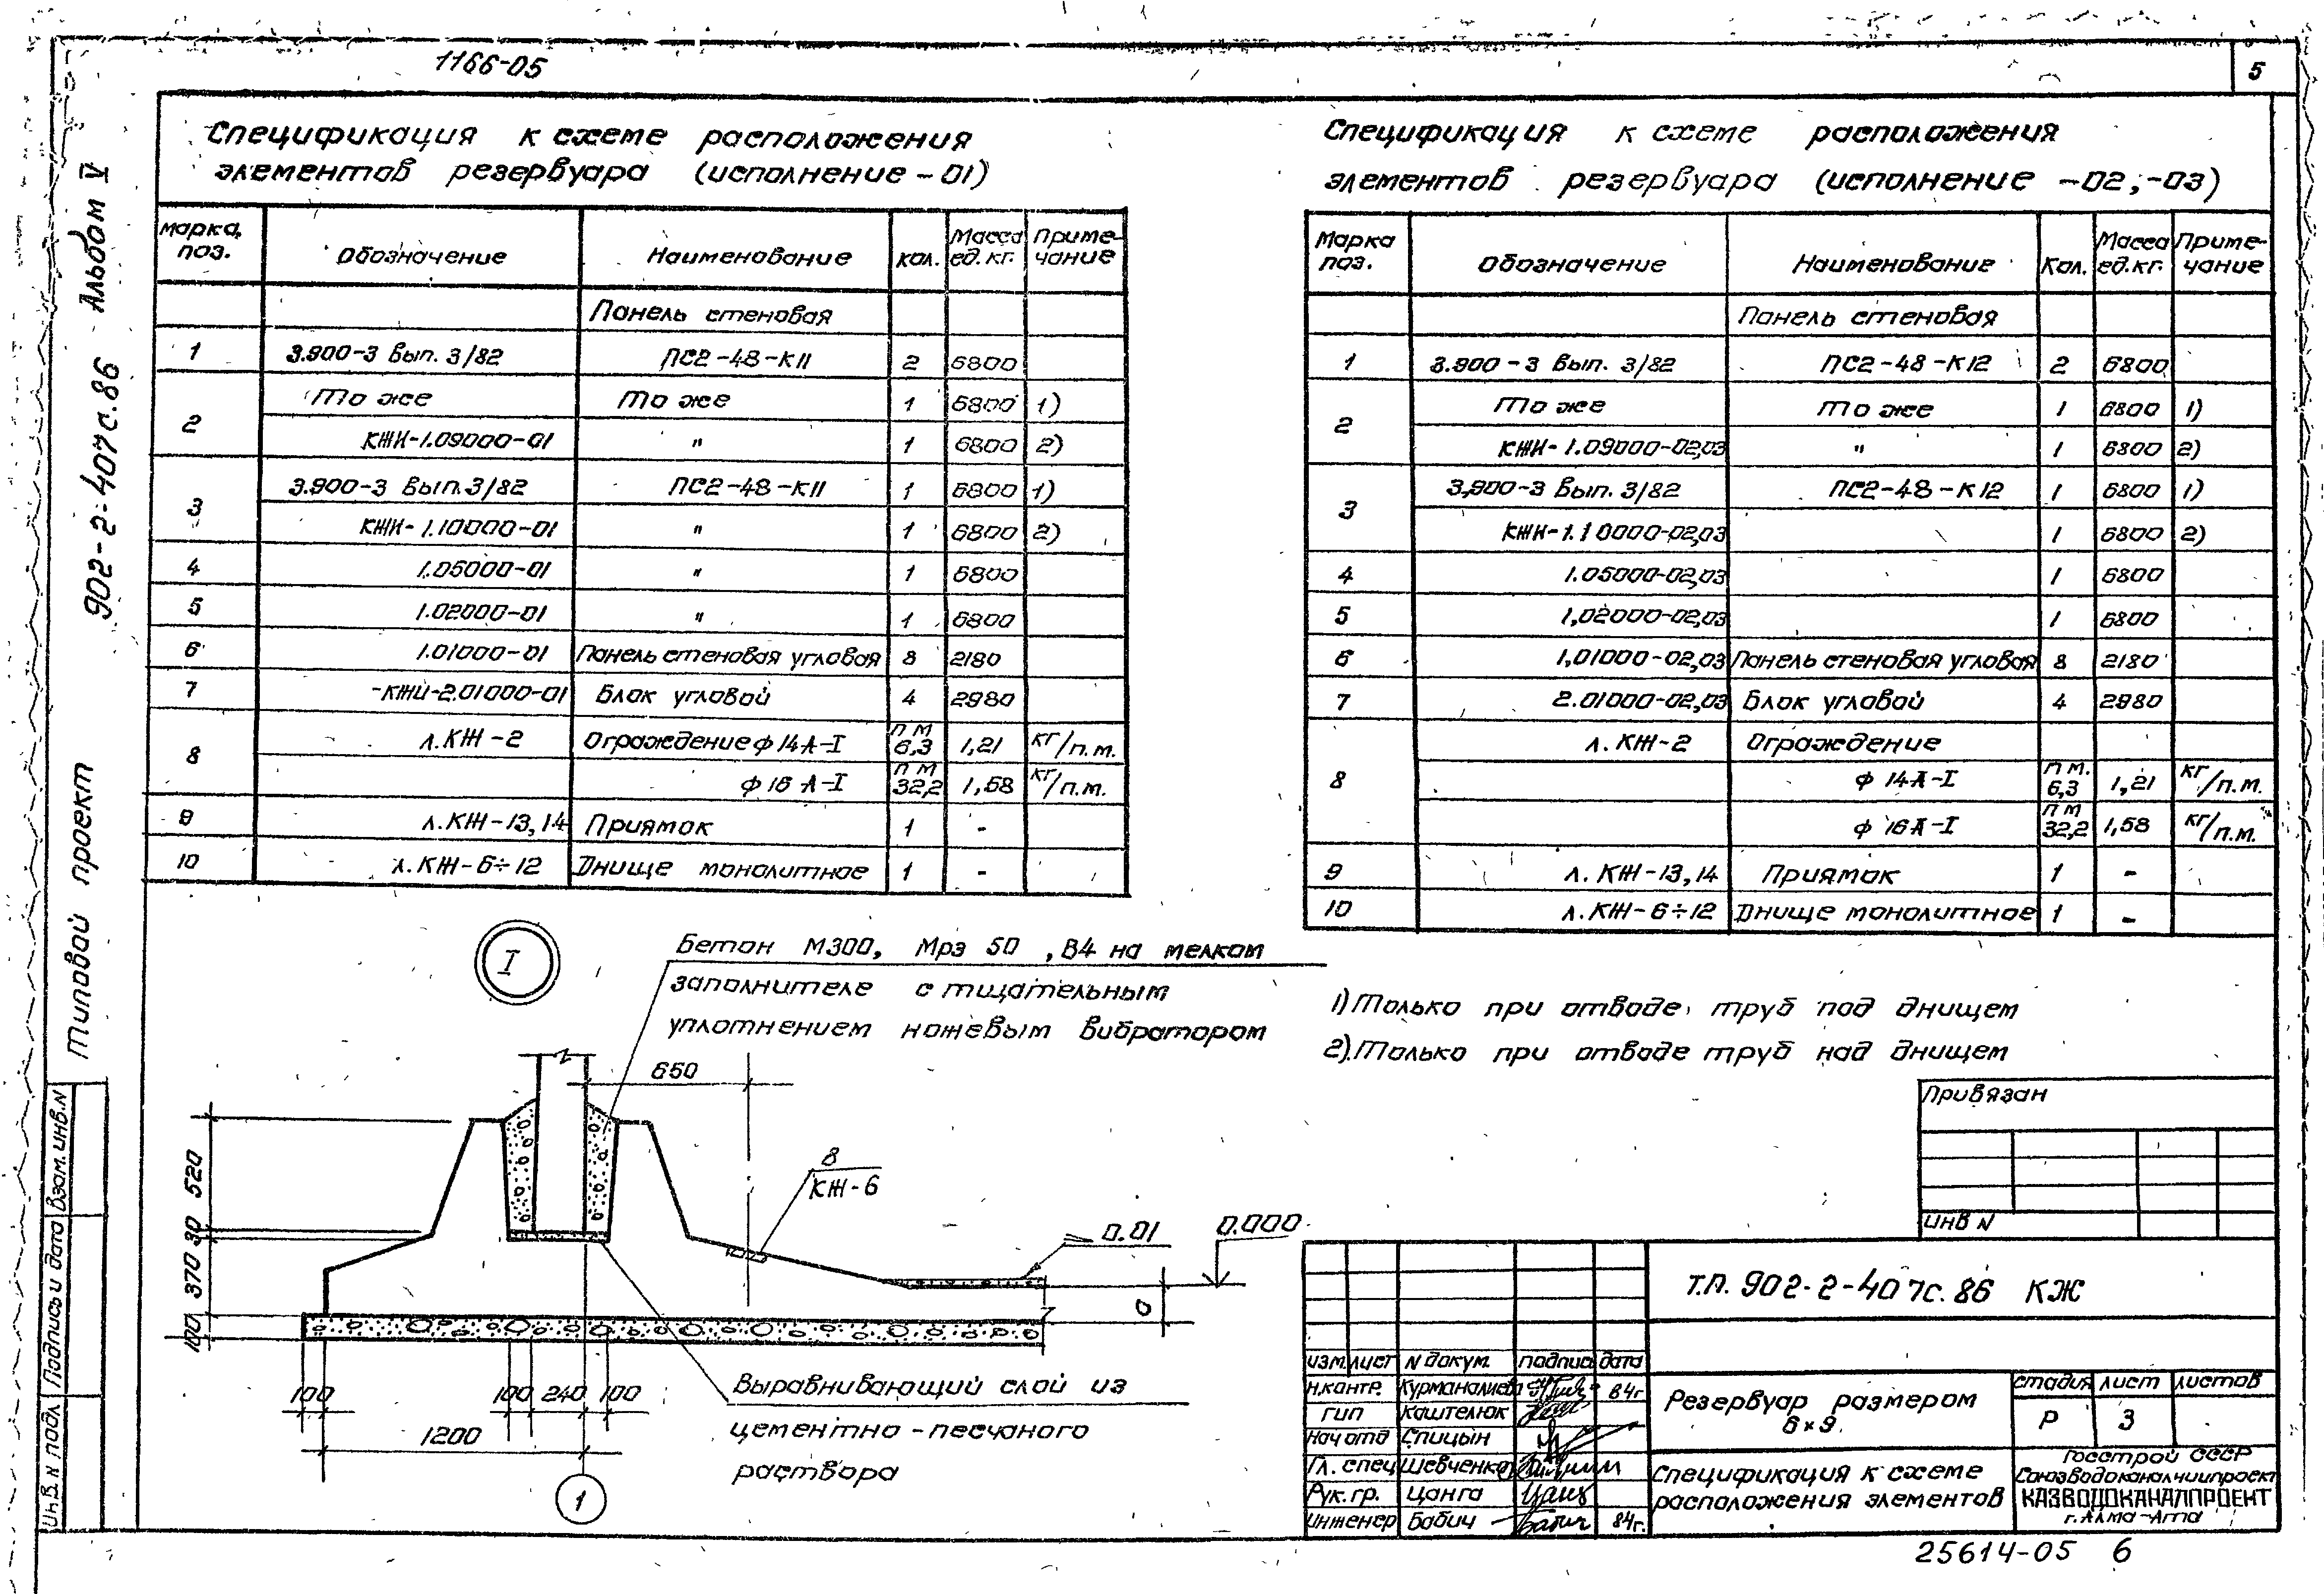 1166-05
5
Типовой проект 902-2-407с.86 Альбом V
Спецификация к схеме расположения
элементов резервуара (исполнение -01)
Марка, поз. Обозначение Наименование Кол. Масса ед.кг. Примечание
Панель стеновая
1 3.900-3 вып. 3/82 ПС2-48-К11 2 6800
2 То же То же 1 6800 1)
КЖИ-1.09000-01 " 1 6800 2)
3 3.900-3 вып. 3/82 ПС2-48-К11 1 6800 1)
КЖИ-1.10000-01 " 1 6800 2)
4 1.05000-01 " 1 6800
5 1.02000-01 " 1 6800
6 1.01000-01 Панель стеновая угловая 8 2180
7 -КЖИ-2.01000-01 Блок угловой 4 2980
8 л.КЖ-2 Ограждение ф 14А-I п м 6,3 1,21 кг/п.м.
ф 16 А-I п м 32,2 1,58 кг/п.м.
9 л.КЖ-13,14 Приямок 1 -
10 л.КЖ-6÷12 Днище монолитное 1 -
Спецификация к схеме расположения
элементов резервуара (исполнение -02,-03)
Марка поз. Обозначение Наименование Кол. Масса ед.кг. Примечание
Панель стеновая
1 3.900-3 вып. 3/82 ПС2-48-К12 2 6800
2 То же То же 1 6800 1)
КЖИ-1.09000-02,03 " 1 6800 2)
3 3.900-3 вып. 3/82 ПС2-48-К12 1 6800 1)
КЖИ-1.10000-02,03 1 6800 2)
4 1.05000-02,03 1 6800
5 1,02000-02,03 1 6800
6 1,01000-02,03 Панель стеновая угловая 8 2180
7 2.01000-02,03 Блок угловой 4 2980
8 л. КЖ-2 Ограждение
ф 14А-I п м. 6,3 1,21 кг/п.м.
ф 16А-I п м 32,2 1,58 кг/п.м.
9 л. КЖ-13,14 Приямок 1 -
10 л.КЖ-6÷12 Днище монолитное 1 -
I
Бетон М300, Мрз 50, В4 на мелком
заполнителе с тщательным
уплотнением ножевым вибратором
650
8
КЖ-6
0.01
0.000
520
30
370
100
100
100 240 100
1200
1
Выравнивающий слой из
цементно-песчаного
раствора
1) Только при отводе труб под днищем
2). Только при отводе труб над днищем
Привязан
ИНВ N
Т.П. 902-2-407с.86 КЖ
изм. лист N докум. подпис дата
Н.контр. Курманалиева 84г
ГИП Каштелюк
Нач отд Спицын
Гл. спец Шевченко
Рук. гр. Цанга
Инженер Бабич 84г.
Резервуар размером
6×9.
стадия лист листов
Р 3
Спецификация к схеме
расположения элементов
Госстрой СССР
Союзводоканалниипроект
КАЗВОДОКАНАЛПРОЕКТ
г. Алма-Ата
Инв. N подл Подпись и дата Взам. инв. N
25614-05 6